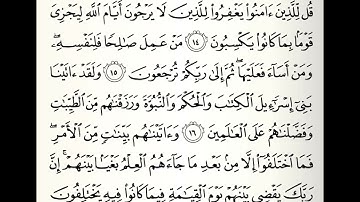 قُل لِّلَّذِينَ ءَامَنُوا۟ يَغْفِرُوا۟ لِلَّذِينَ لَا يَرْجُونَ أَيَّامَ ٱللَّهِ لِيَجْزِىَ
قَوْمًۢا بِمَا كَانُوا۟ يَكْسِبُونَ ۝١٤ مَنْ عَمِلَ صَـٰلِحًا فَلِنَفْسِهِۦ ۖ
وَمَنْ أَسَآءَ فَعَلَيْهَا ۖ ثُمَّ إِلَىٰ رَبِّكُمْ تُرْجَعُونَ ۝١٥ وَلَقَدْ ءَاتَيْنَا
بَنِىٓ إِسْرَٰٓءِيلَ ٱلْكِتَـٰبَ وَٱلْحُكْمَ وَٱلنُّبُوَّةَ وَرَزَقْنَـٰهُم مِّنَ ٱلطَّيِّبَـٰتِ
وَفَضَّلْنَـٰهُمْ عَلَى ٱلْعَـٰلَمِينَ ۝١٦ وَءَاتَيْنَـٰهُم بَيِّنَـٰتٍ مِّنَ ٱلْأَمْرِ ۖ
فَمَا ٱخْتَلَفُوٓا۟ إِلَّا مِنۢ بَعْدِ مَا جَآءَهُمُ ٱلْعِلْمُ بَغْيًۢا بَيْنَهُمْ ۚ إِنَّ
رَبَّكَ يَقْضِى بَيْنَهُمْ يَوْمَ ٱلْقِيَـٰمَةِ فِيمَا كَانُوا۟ فِيهِ يَخْتَلِفُونَ